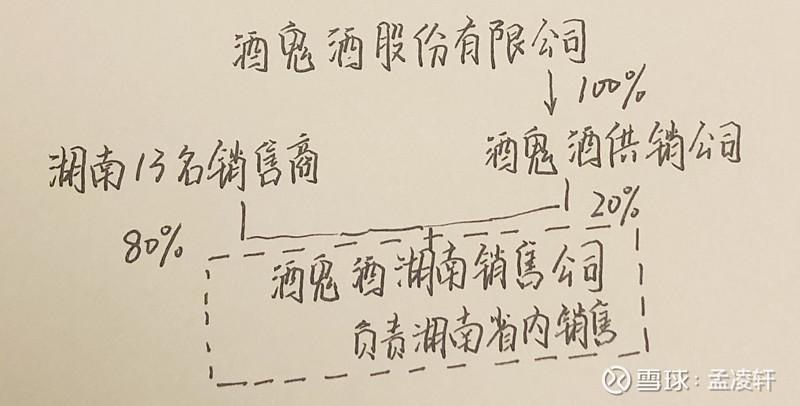 酒鬼酒股份有限公司
100%
湖南13名销售商
酒鬼酒供销公司
80%
20%
酒鬼酒湖南销售公司
负责湖南省内销售
雪球:孟凌轩